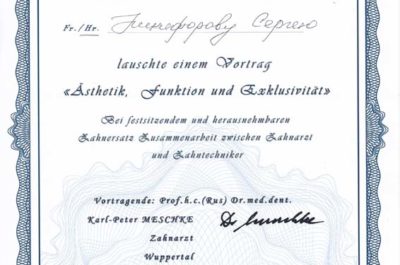 Fr./Hr. Никифорову Сергею
lauschte einem Vortrag
«Ästhetik, Funktion und Exklusivität»
Bei festsitzendem und herausnehmbaren
Zahnersatz Zusammenarbeit zwischen Zahnarzt
und Zahntechniker
Vortragende: Prof.h.c.(Rus) Dr.med.dent.
Karl-Peter MESCHKE Dr Meschke
Zahnarzt
Wuppertal